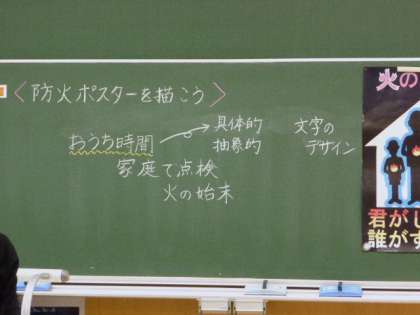 〈防火ポスターを描こう〉
おうち時間
具体的
抽象的
文字の
デザイン
家庭で点検
火の始末
火の
君が
誰が